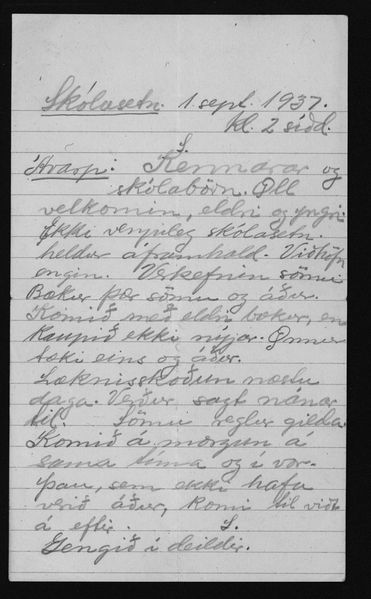 Skólasetn. 1. sept. 1937.
kl. 2 síðd.
S.
Ávarp: Kennarar og
skólabörn. Öll
velkomin, eldri og yngri.
Ekki venjuleg skólasetn.
heldur áframhald. Viðhöfn
engin. Verkefnin sömu
Bækur þær sömu og áður.
Komið með eldri bækur, en
kaupið ekki nýjar. Önnur
tæki eins og áður.
Læknisskoðun næstu
daga. Verður sagt nánar
til. Sömu reglur gilda.
Komið á morgun á
sama tíma og í vor.
Þau, sem ekki hafa
verið áður, komi til viðt.
á eftir. S.
Gengið í deildir.